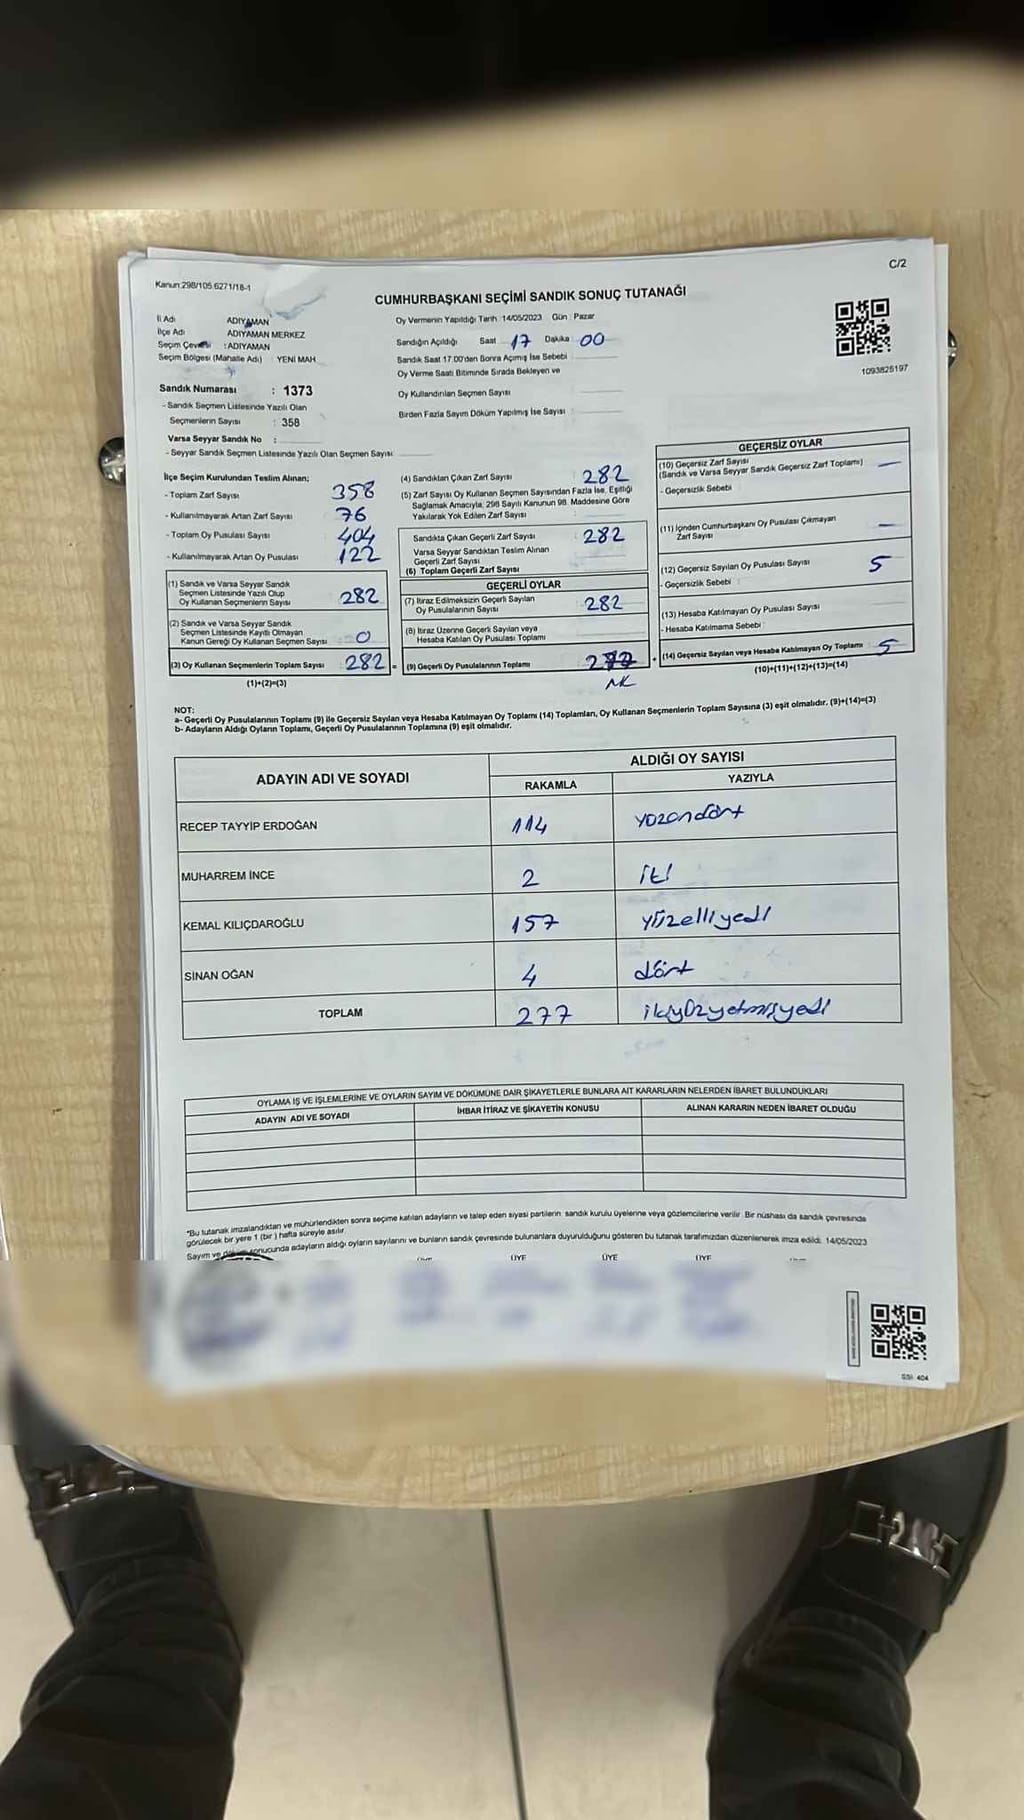 C/2
Kanun:298/105.6271/18-1
CUMHURBAŞKANI SEÇİMİ SANDIK SONUÇ TUTANAĞI
İl Adı ADIYAMAN
İlçe Adı ADIYAMAN MERKEZ
Seçim Çevresi : ADIYAMAN
Seçim Bölgesi (Mahalle Adı) YENİ MAH.
Sandık Numarası : 1373
- Sandık Seçmen Listesinde Yazılı Olan
Seçmenlerin Sayısı : 358
Varsa Seyyar Sandık No :
- Seyyar Sandık Seçmen Listesinde Yazılı Olan Seçmen Sayısı
Oy Vermenin Yapıldığı Tarih :14/05/2023 Gün : Pazar
Sandığın Açıldığı Saat 17 Dakika 00
Sandık Saat 17.00'den Sonra Açılmış İse Sebebi
Oy Verme Saati Bitiminde Sırada Bekleyen ve
Oy Kullandırılan Seçmen Sayısı
Birden Fazla Sayım Döküm Yapılmış İse Sayısı
1093825197
İlçe Seçim Kurulundan Teslim Alınan;
- Toplam Zarf Sayısı 358
- Kullanılmayarak Artan Zarf Sayısı 76
- Toplam Oy Pusulası Sayısı 404
- Kullanılmayarak Artan Oy Pusulası 122
(1) Sandık ve Varsa Seyyar Sandık
Seçmen Listesinde Yazılı Olup
Oy Kullanan Seçmenlerin Sayısı 282
(2) Sandık ve Varsa Seyyar Sandık
Seçmen Listesinde Kayıtlı Olmayan
Kanun Gereği Oy Kullanan Seçmen Sayısı 0
(3) Oy Kullanan Seçmenlerin Toplam Sayısı 282 =
(1)+(2)=(3)
(4) Sandıktan Çıkan Zarf Sayısı 282
(5) Zarf Sayısı Oy Kullanan Seçmen Sayısından Fazla İse, Eşitliği
Sağlamak Amacıyla, 298 Sayılı Kanunun 98. Maddesine Göre
Yakılarak Yok Edilen Zarf Sayısı
Sandıkta Çıkan Geçerli Zarf Sayısı 282
Varsa Seyyar Sandıktan Teslim Alınan
Geçerli Zarf Sayısı
(6) Toplam Geçerli Zarf Sayısı
GEÇERLİ OYLAR
(7) İtiraz Edilmeksizin Geçerli Sayılan
Oy Pusulalarının Sayısı 282
(8) İtiraz Üzerine Geçerli Sayılan veya
Hesaba Katılan Oy Pusulası Toplamı
(9) Geçerli Oy Pusulalarının Toplamı 277 +
GEÇERSİZ OYLAR
(10) Geçersiz Zarf Sayısı
(Sandık ve Varsa Seyyar Sandık Geçersiz Zarf Toplamı) —
- Geçersizlik Sebebi
(11) İçinden Cumhurbaşkanı Oy Pusulası Çıkmayan
Zarf Sayısı —
(12) Geçersiz Sayılan Oy Pusulası Sayısı 5
- Geçersizlik Sebebi :
(13) Hesaba Katılmayan Oy Pusulası Sayısı
- Hesaba Katılmama Sebebi
(14) Geçersiz Sayılan veya Hesaba Katılmayan Oy Toplamı 5
(10)+(11)+(12)+(13)=(14)
NOT:
a- Geçerli Oy Pusulalarının Toplamı (9) ile Geçersiz Sayılan veya Hesaba Katılmayan Oy Toplamı (14) Toplamları, Oy Kullanan Seçmenlerin Toplam Sayısına (3) eşit olmalıdır. (9)+(14)=(3)
b- Adayların Aldığı Oyların Toplamı, Geçerli Oy Pusulalarının Toplamına (9) eşit olmalıdır.
ADAYIN ADI VE SOYADI ALDIĞI OY SAYISI
RAKAMLA YAZIYLA
RECEP TAYYİP ERDOĞAN 114 yüzondört
MUHARREM İNCE 2 iki
KEMAL KILIÇDAROĞLU 157 yüzelliyedi
SİNAN OĞAN 4 dört
TOPLAM 277 ikiyüzyetmişyedi
OYLAMA İŞ VE İŞLEMLERİNE VE OYLARIN SAYIM VE DÖKÜMÜNE DAİR ŞİKAYETLERLE BUNLARA AİT KARARLARIN NELERDEN İBARET BULUNDUKLARI
ADAYIN ADI VE SOYADI İHBAR İTİRAZ VE ŞİKAYETİN KONUSU ALINAN KARARIN NEDEN İBARET OLDUĞU
*Bu tutanak imzalandıktan ve mühürlendikten sonra seçime katılan adayların ve talep eden siyasi partilerin sandık kurulu üyelerine veya gözlemcilerine verilir. Bir nüshası da sandık çevresinde
görülecek bir yere 1 (bir) hafta süreyle asılır.
Sayım ve döküm sonucunda adayların aldığı oyların sayılarını ve bunların sandık çevresinde bulunanlara duyurulduğunu gösteren bu tutanak tarafımızdan düzenlenerek imza edildi. 14/05/2023
ÜYE ÜYE ÜYE ÜYE
SSI: 404